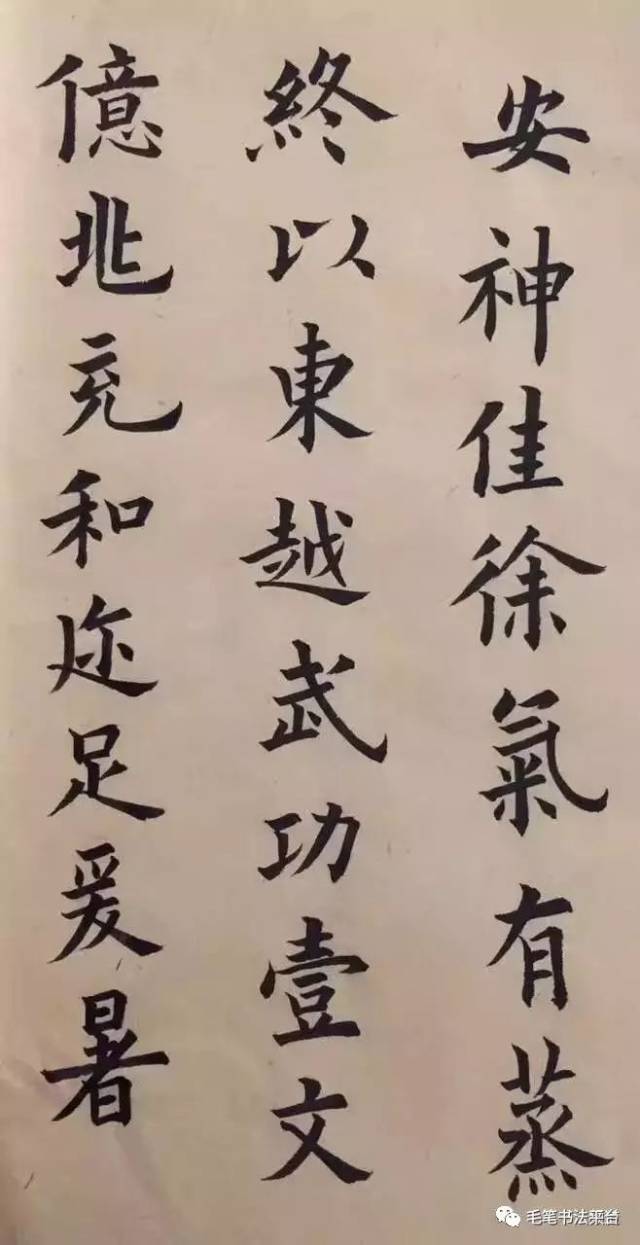 安神佳徐氣有蒸
終以東越武功壹文
億兆充和迩足爰暑
毛笔书法菜台